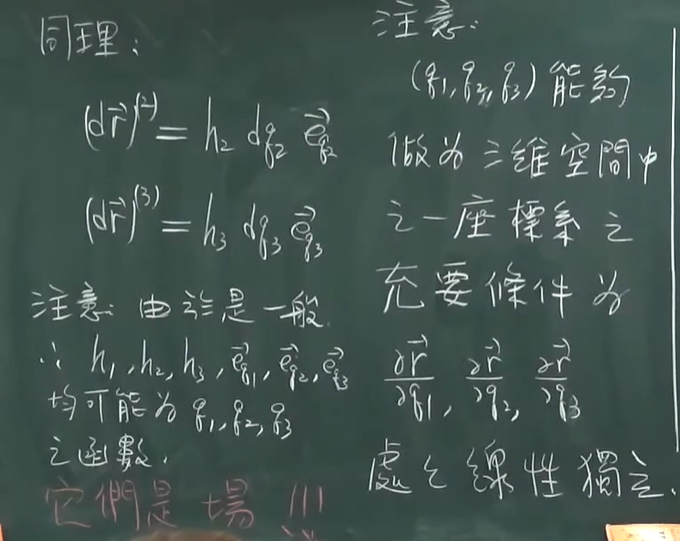 同理：
(dr⃗)⁽²⁾ = h₂ dq₂ e⃗_q₂
(dr⃗)⁽³⁾ = h₃ dq₃ e⃗_q₃
注意：由於是一般
∴ h₁, h₂, h₃, e⃗_q₁, e⃗_q₂, e⃗_q₃
均可能為 q₁, q₂, q₃
之函數.
它們是場!!!
注意：
(q₁, q₂, q₃) 能夠
做為三維空間中
之一座標系之
充要條件為
∂r⃗/∂q₁, ∂r⃗/∂q₂, ∂r⃗/∂q₃
處处線性獨立.